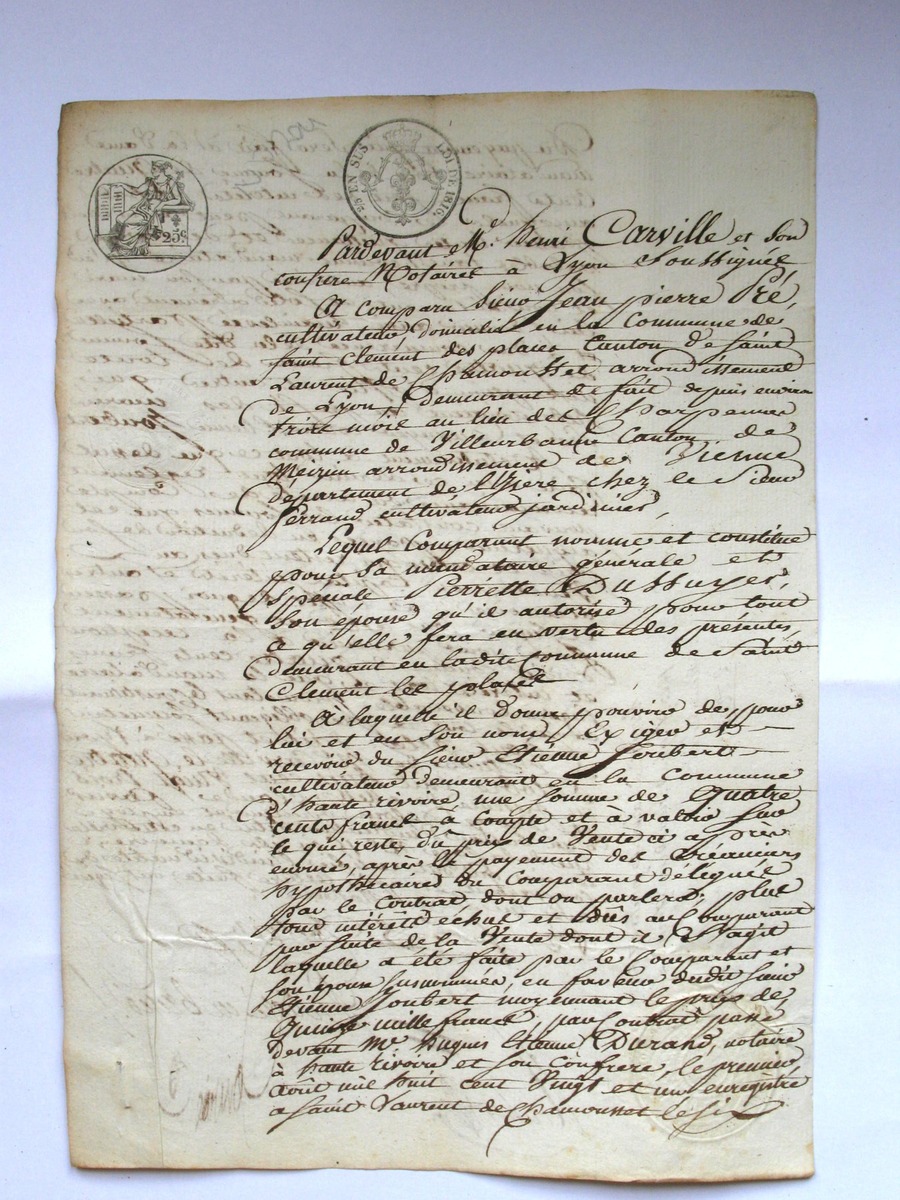 25 EN SUS
LOI DE 1816
25c
Pardevant Me. henri Carville et son
confrere Notaires à Lyon Soussignés
A comparu Sieur Jean pierre Pré,
cultivateur domicilié en la Commune de
saint Clément des places Canton de Saint
Laurent de Chamousset arrondissement
de Lyon, demeurant de fait depuis environ
trois mois au lieu des Charpennes
commune de Villeurbanne Canton de
Meizieu arrondissement de Vienne
département de l'Isère chez le Sieur
ferrand cultivateur jardinier,
Lequel Comparant nomme et constitue
pour sa mandataire générale et
spéciale Pierrette Dussuyer,
son épouse qu'il autorise pour tout
ce qu'elle fera en vertu des présentes
demeurant en ladite Commune de Saint
Clement les places
A laquelle il donne pouvoir de pour
lui et en son nom, Exiger et
recevoir du Sieur Etienne Joubert
cultivateur demeurant en la commune
d'haute rivoire, une somme de quatre
cents francs à compte et à valoir sur
ce qui reste dû du prix de Vente ci après
enoncé, après le payement des Créanciers
hypothécaires du Comparant délégués
par le Contrat dont on parlera, plus
tous intérêts échus et dûs au Comparant
par suite de la Vente dont il s'agit
laquelle a été faite par le Comparant et
son épouse susnommée, en faveur dudit Sieur
Etienne Joubert moyennant le prix de
Quinze mille francs, par Contrat passé
devant Me. hugues Etienne Durand, notaire
à haute rivoire et son confrere, le premier
août mil huit cent Vingt et un, enregistré
a Saint Laurent de Chamousset le six